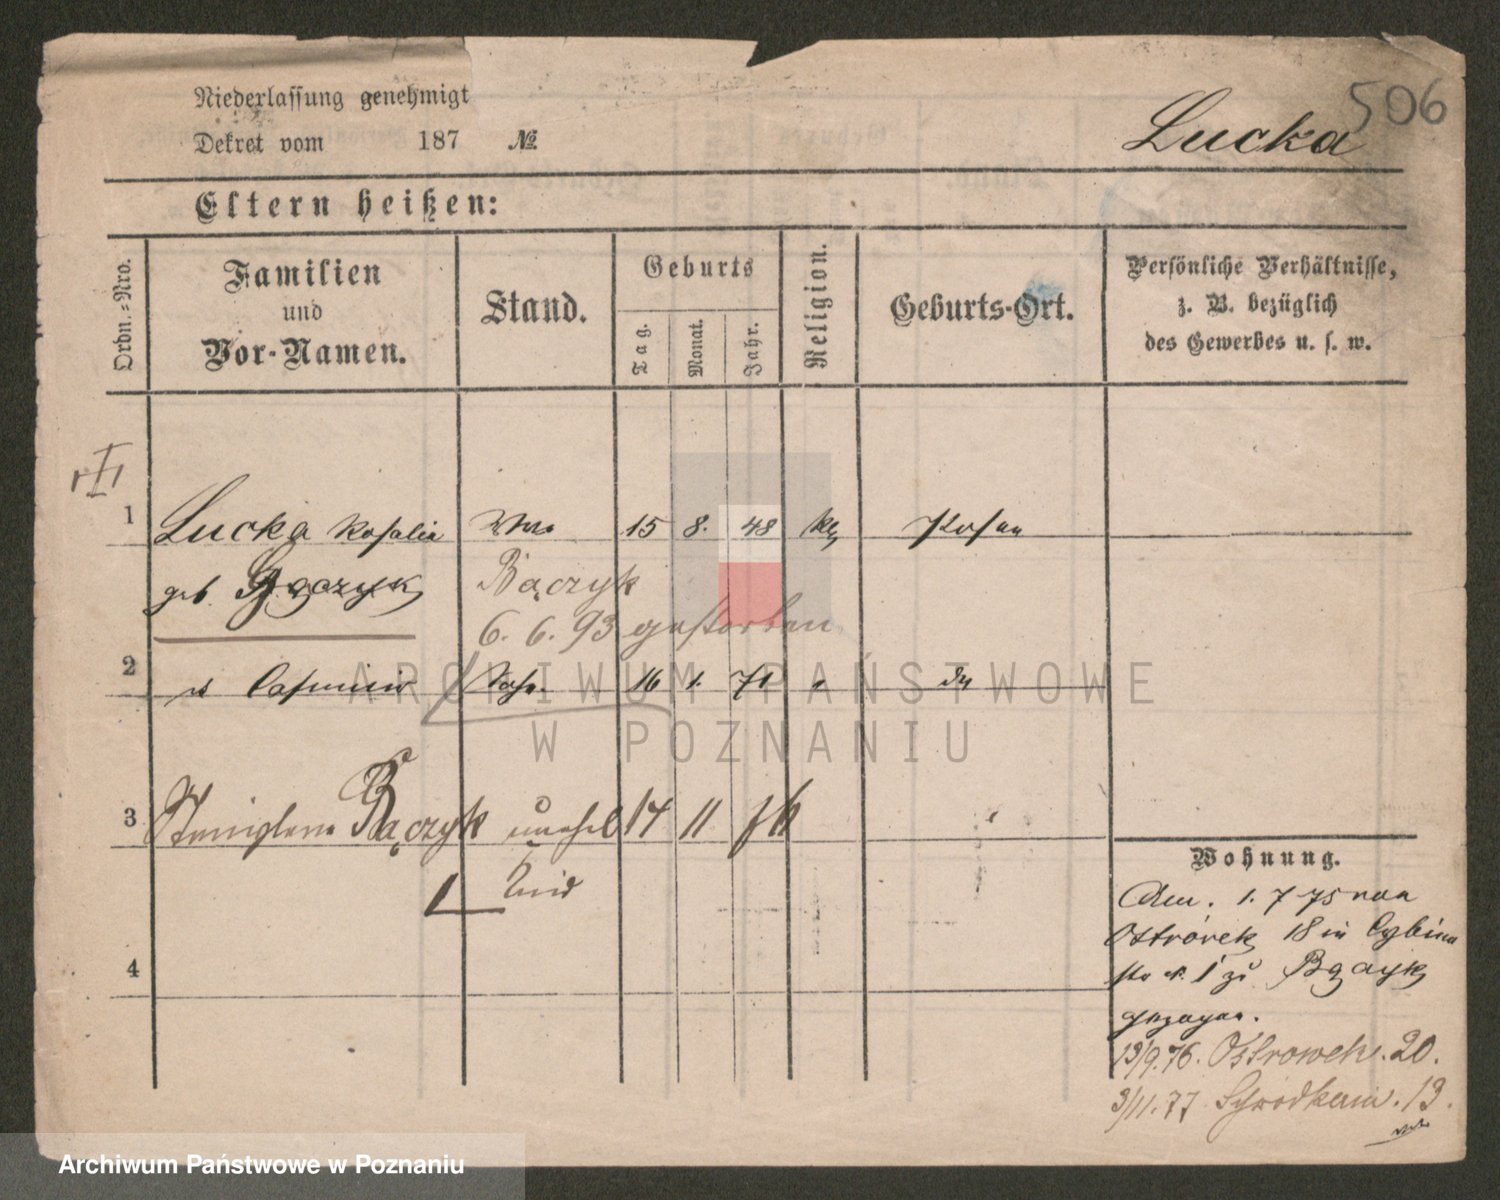 506
Niederlassung genehmigt
Dekret vom 187 №
Lucka
Eltern heißen:
Ordn.-Nro.
Familien
und
Vor-Namen.
Stand.
Geburts
Tag.
Monat.
Jahr.
Religion.
Geburts-Ort.
Persönliche Verhältnisse,
z. B. bezüglich
des Gewerbes u. s. w.
1 Lucka Rosalia Wwe 15 8. 48 kt Posen
geb. Bączyk
6. 6. 93 gestorben
2 Casimir Sohn 16 1. 71 do
3 Stanislawa Bączyk unehel 14 11 76
Kind
4
Wohnung.
Am. 1. 7 75 von
Ostrówek 18 in Cybina
str N. 1 zu Bączyk
gezogen.
13/9.76. Ostrowek. 20.
3/11.77 Schrodkam. 13.
ARCHIWUM PAŃSTWOWE
W POZNANIU
Archiwum Państwowe w Poznaniu